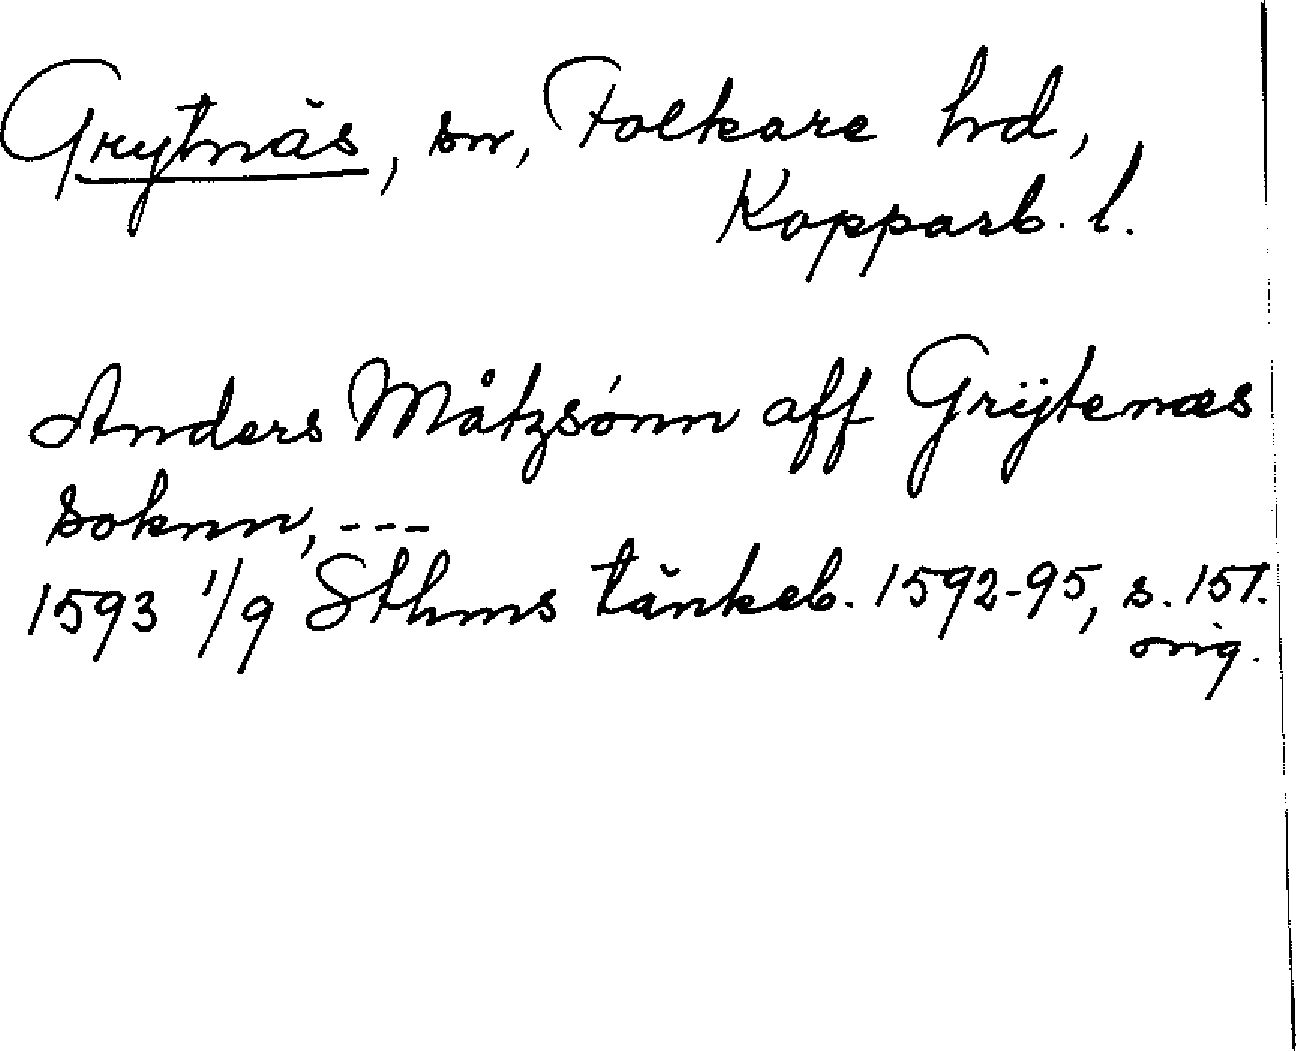 Grytnäs, sn, Folkare hrd,
Kopparb. l.
Anders Måtzsónn aff Grÿtenæs
soknn, ---
1593 1/9 Sthms tänkeb. 1592-95, s. 151.
orig.